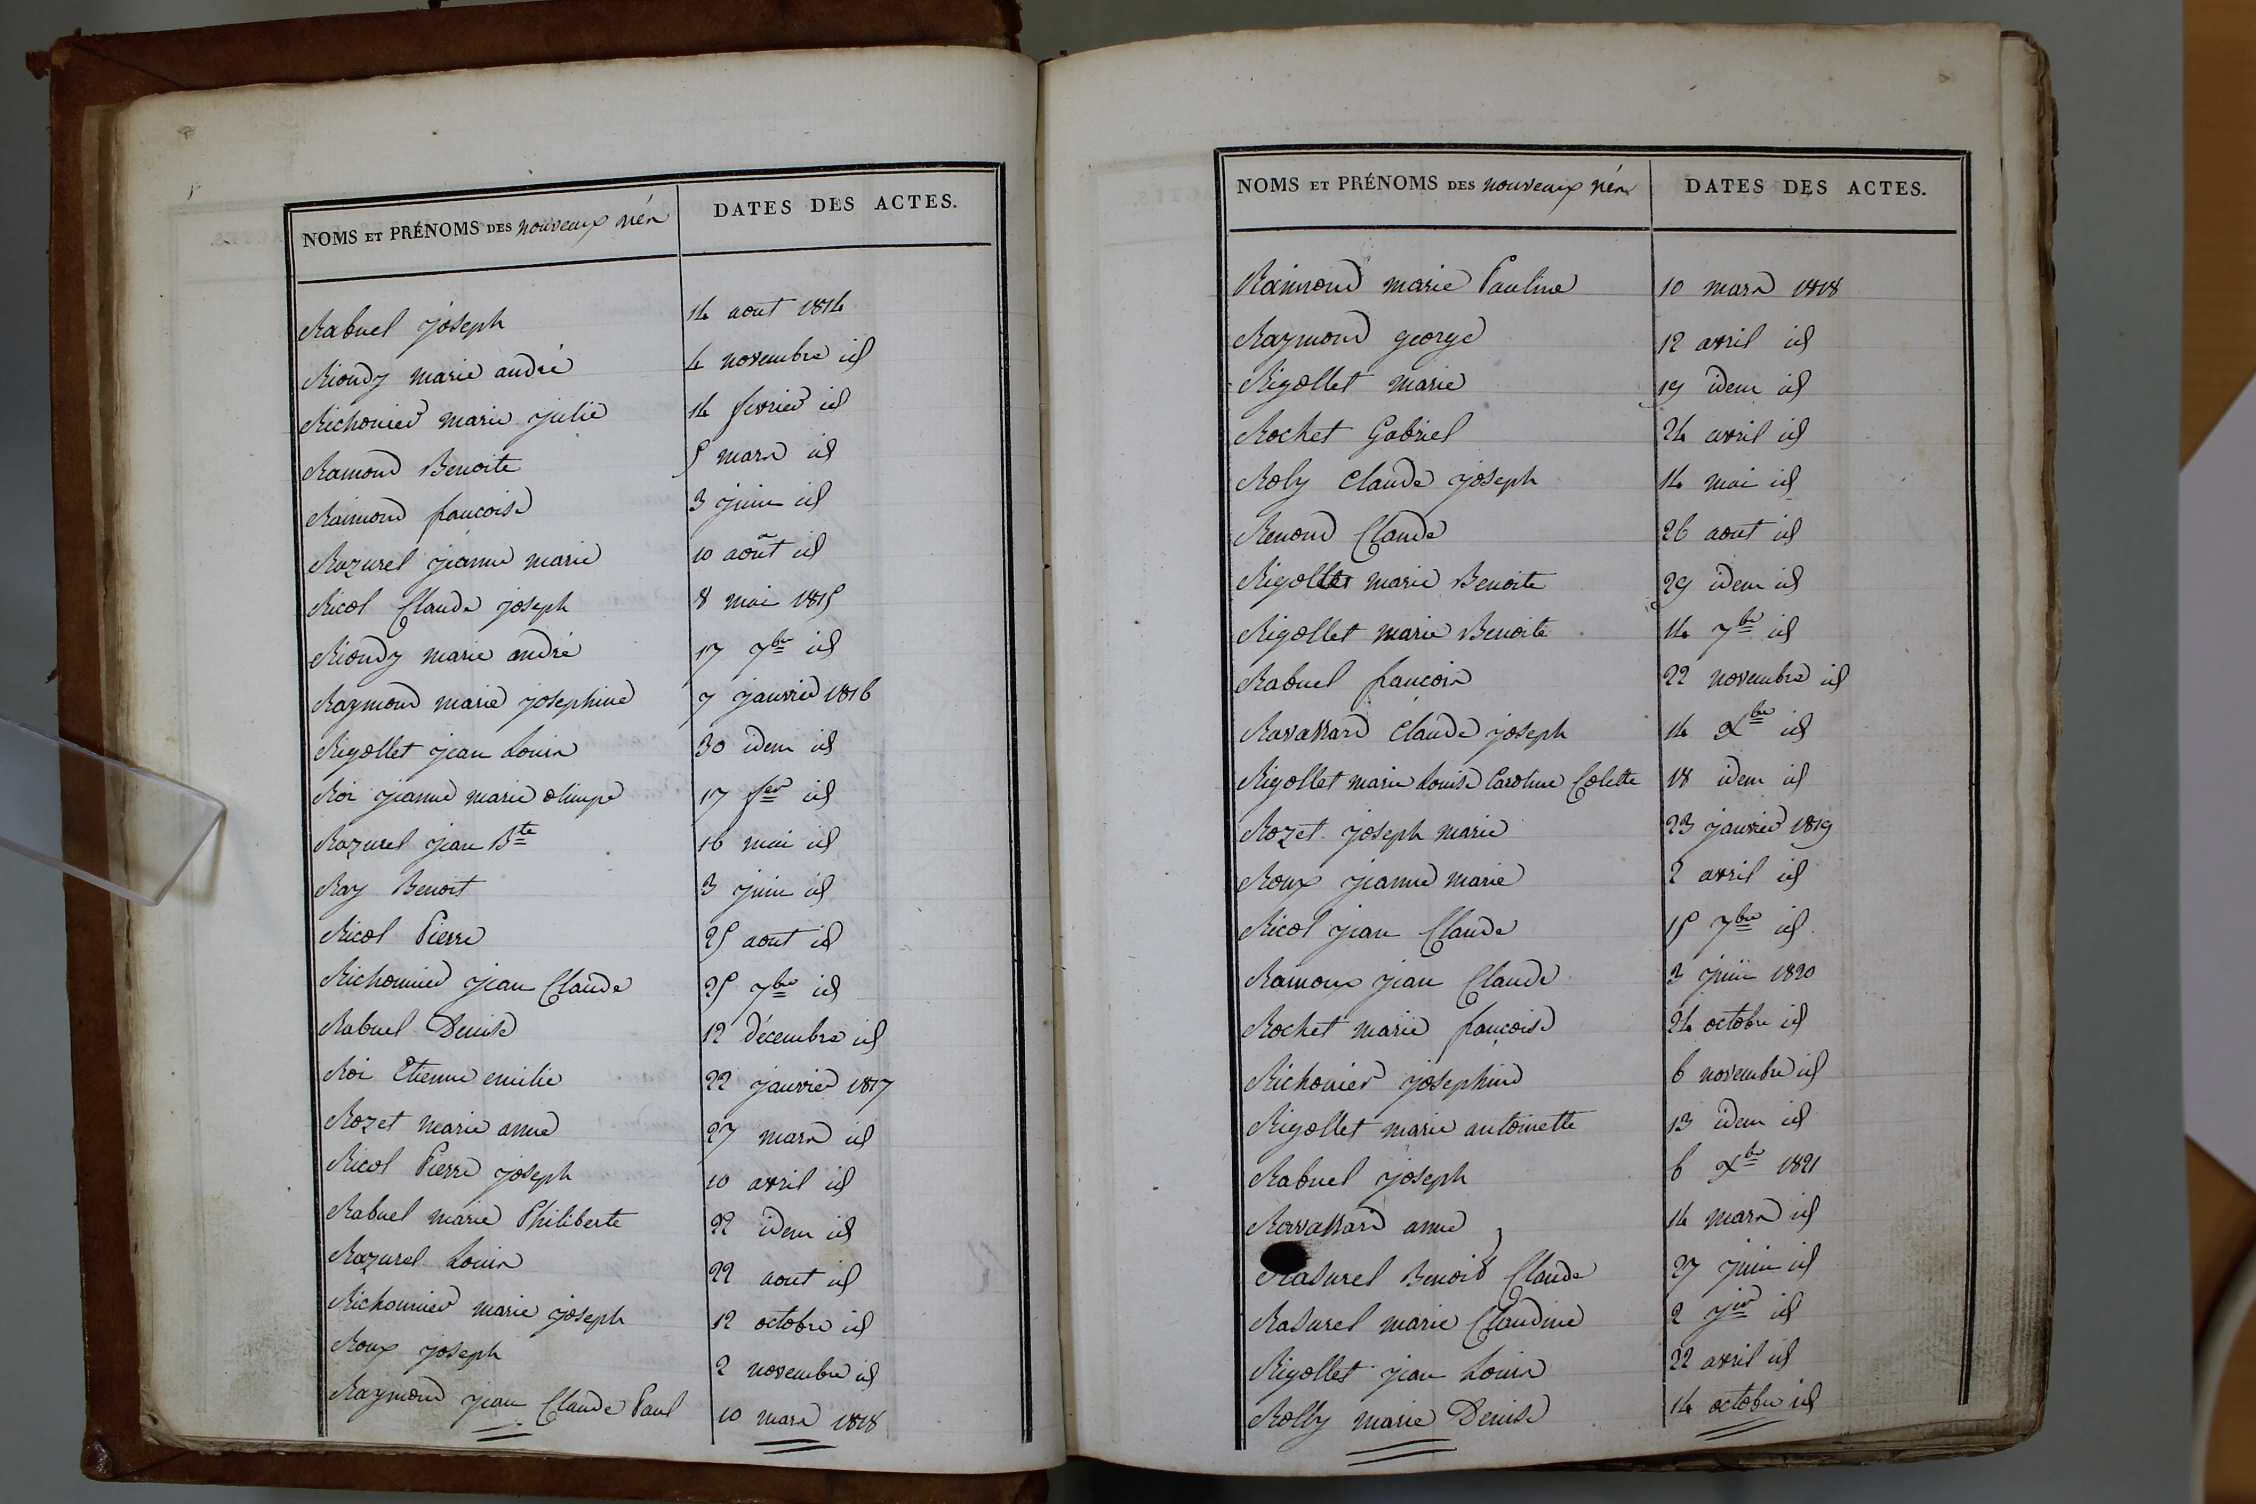 NOMS ET PRÉNOMS DES nouveaux nés DATES DES ACTES.
Rabuel joseph 14 aout 1814
Riondy marie andré 4 novembre id
Richonier marie julie 14 fevrier id
Ramond Benoite 5 mars id
Raimond francoise 3 juin id
Razurel jeanne marie 10 août id
Ricol Claude joseph 8 mai 1815
Riondy marie andré 17 7bre id
Raymond marie josephine 7 janvier 1816
Rigollet jean Louis 30 idem id
Roi jeanne marie olimpe 17 fer id
Razurel jean Bte 16 mai id
Ray Benoit 3 juin id
Ricol Pierre 25 aout id
Richonnier jean Claude 25 7bre id
Rabuel Denise 12 décembre id
Roi Etienne emilie 22 janvier 1817
Rozet marie anne 27 mars id
Ricol Pierre joseph 10 avril id
Rabuel marie Philiberte 22 idem id
Razurel Louis 22 aout id
Richonnier marie joseph 12 octobre id
Roux joseph 2 novembre id
Raymond jean Claude Paul 10 mars 1818
NOMS ET PRÉNOMS DES nouveaux nés DATES DES ACTES.
Raimond marie Pauline 10 mars 1818
Raymond george 12 avril id
Rigollet marie 19 idem id
Rochet Gabriel 24 avril id
Roly Claude joseph 14 mai id
Renond Claude 26 aout id
Rigollet marie Benoite 29 idem id
Rigollet marie Benoite 14 7bre id
Rabuel francois 22 novembre id
Ravassard Claude joseph 14 Xbre id
Rigollet marie Louise Caroline Colette 18 idem id
Rozet joseph marie 23 janvier 1819
Roux jeanne marie 2 avril id
Ricol jean Claude 15 7bre id
Ramoux jean Claude 3 juin 1820
Rochet marie francoise 24 octobre id
Richonier josephine 6 novembre id
Rigollet marie antoinette 13 idem id
Rabuel joseph 6 Xbre 1821
Ravassard anne 14 mars id
Rasurel Benoit Claude 27 juin id
Rasurel marie Claudine 2 jer id
Rigollet jean Louis 22 avril id
Rolly marie Denise 14 octobre id